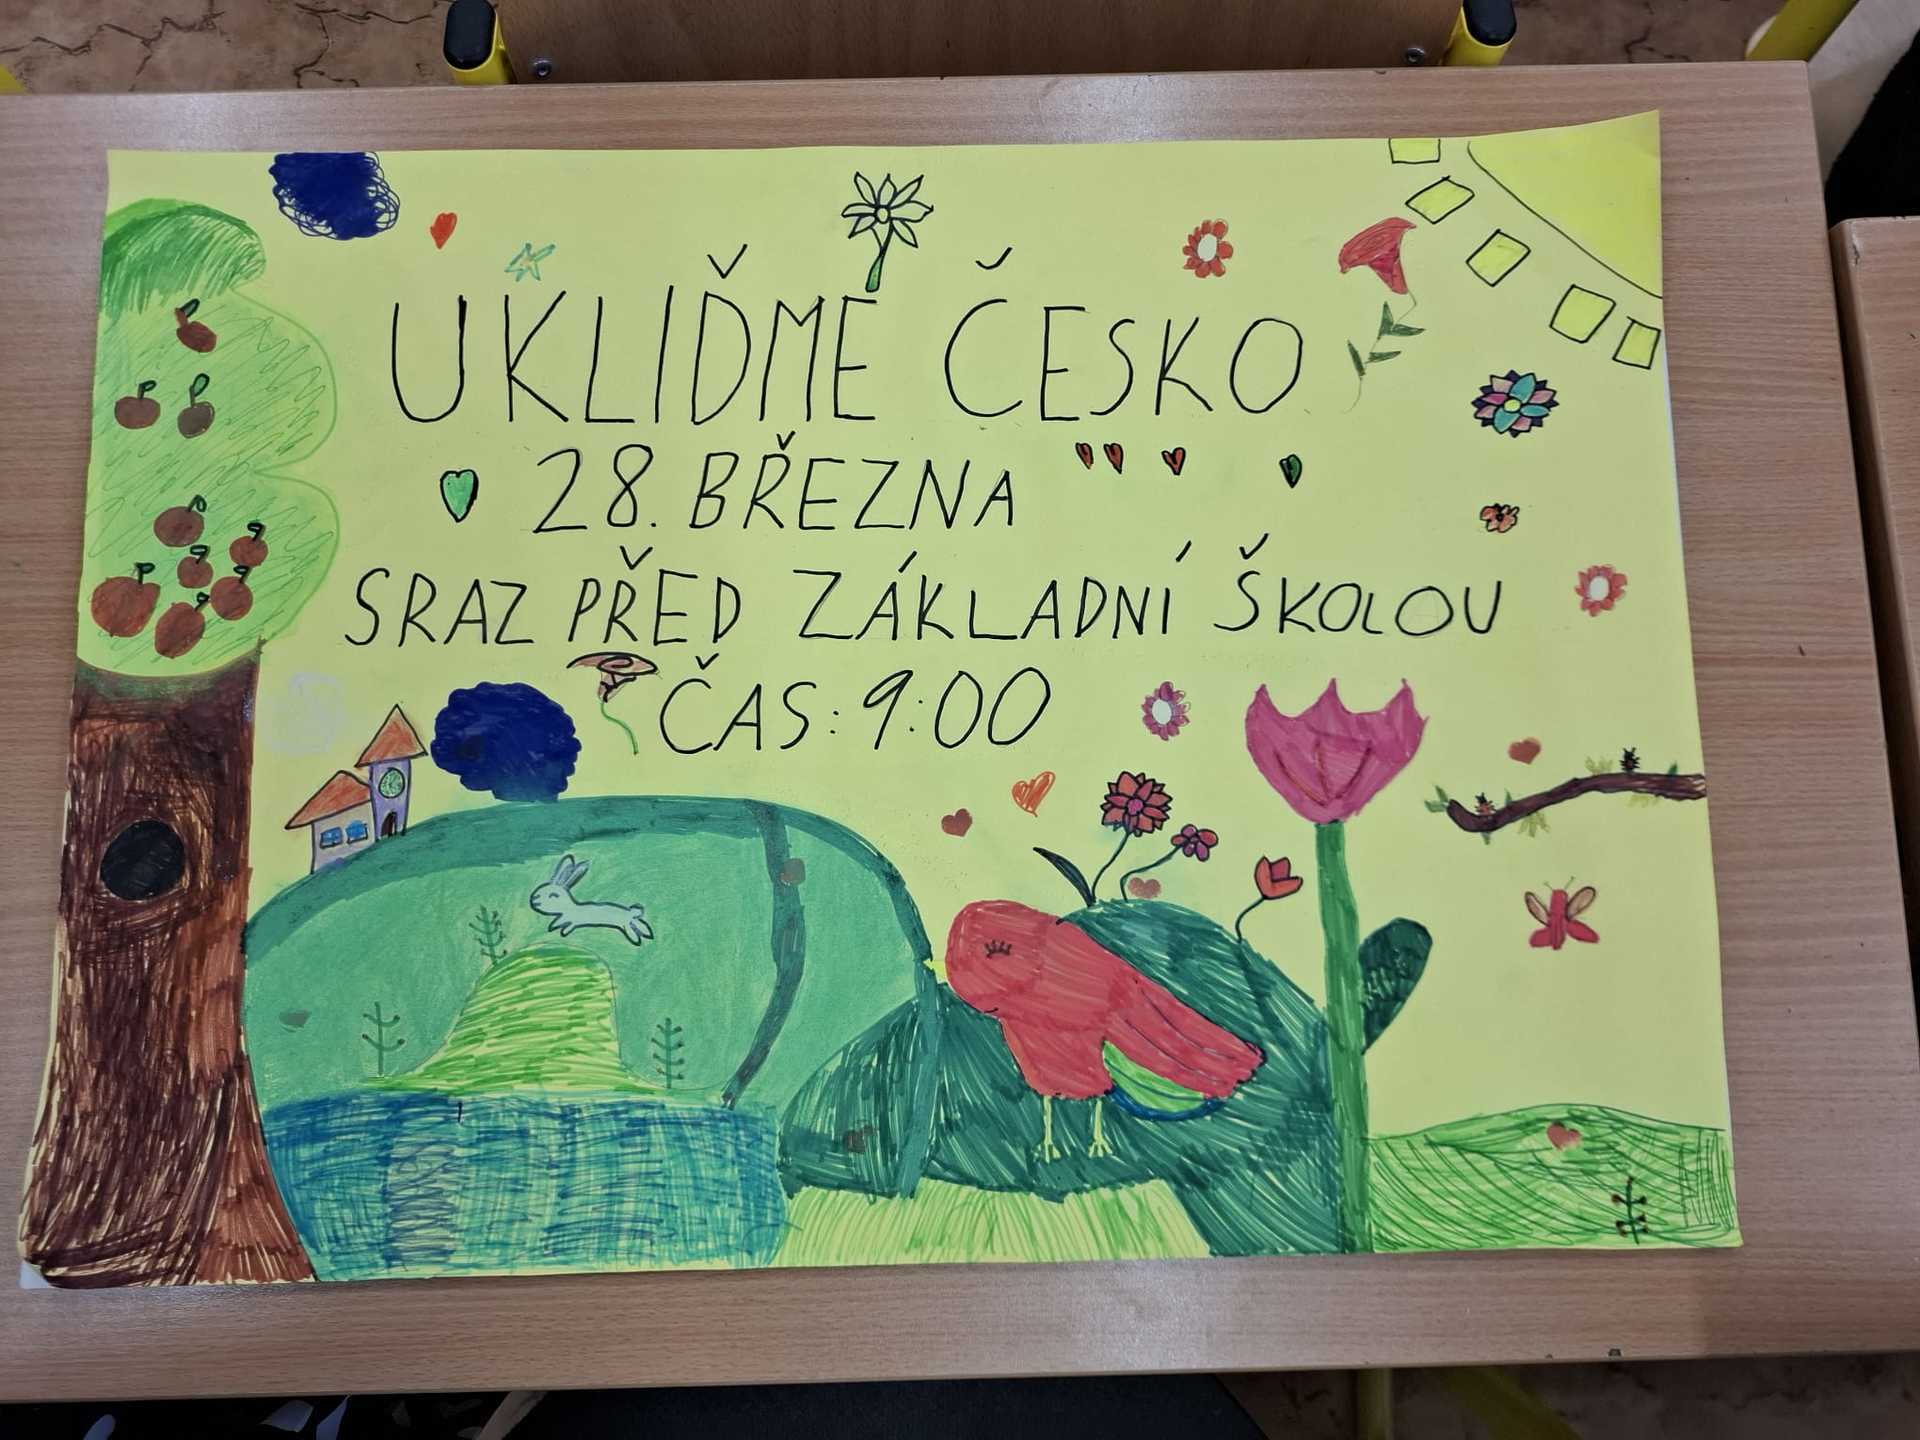 UKLIĎME ČESKO
28. BŘEZNA
SRAZ PŘED ZÁKLADNÍ ŠKOLOU
ČAS: 9:00